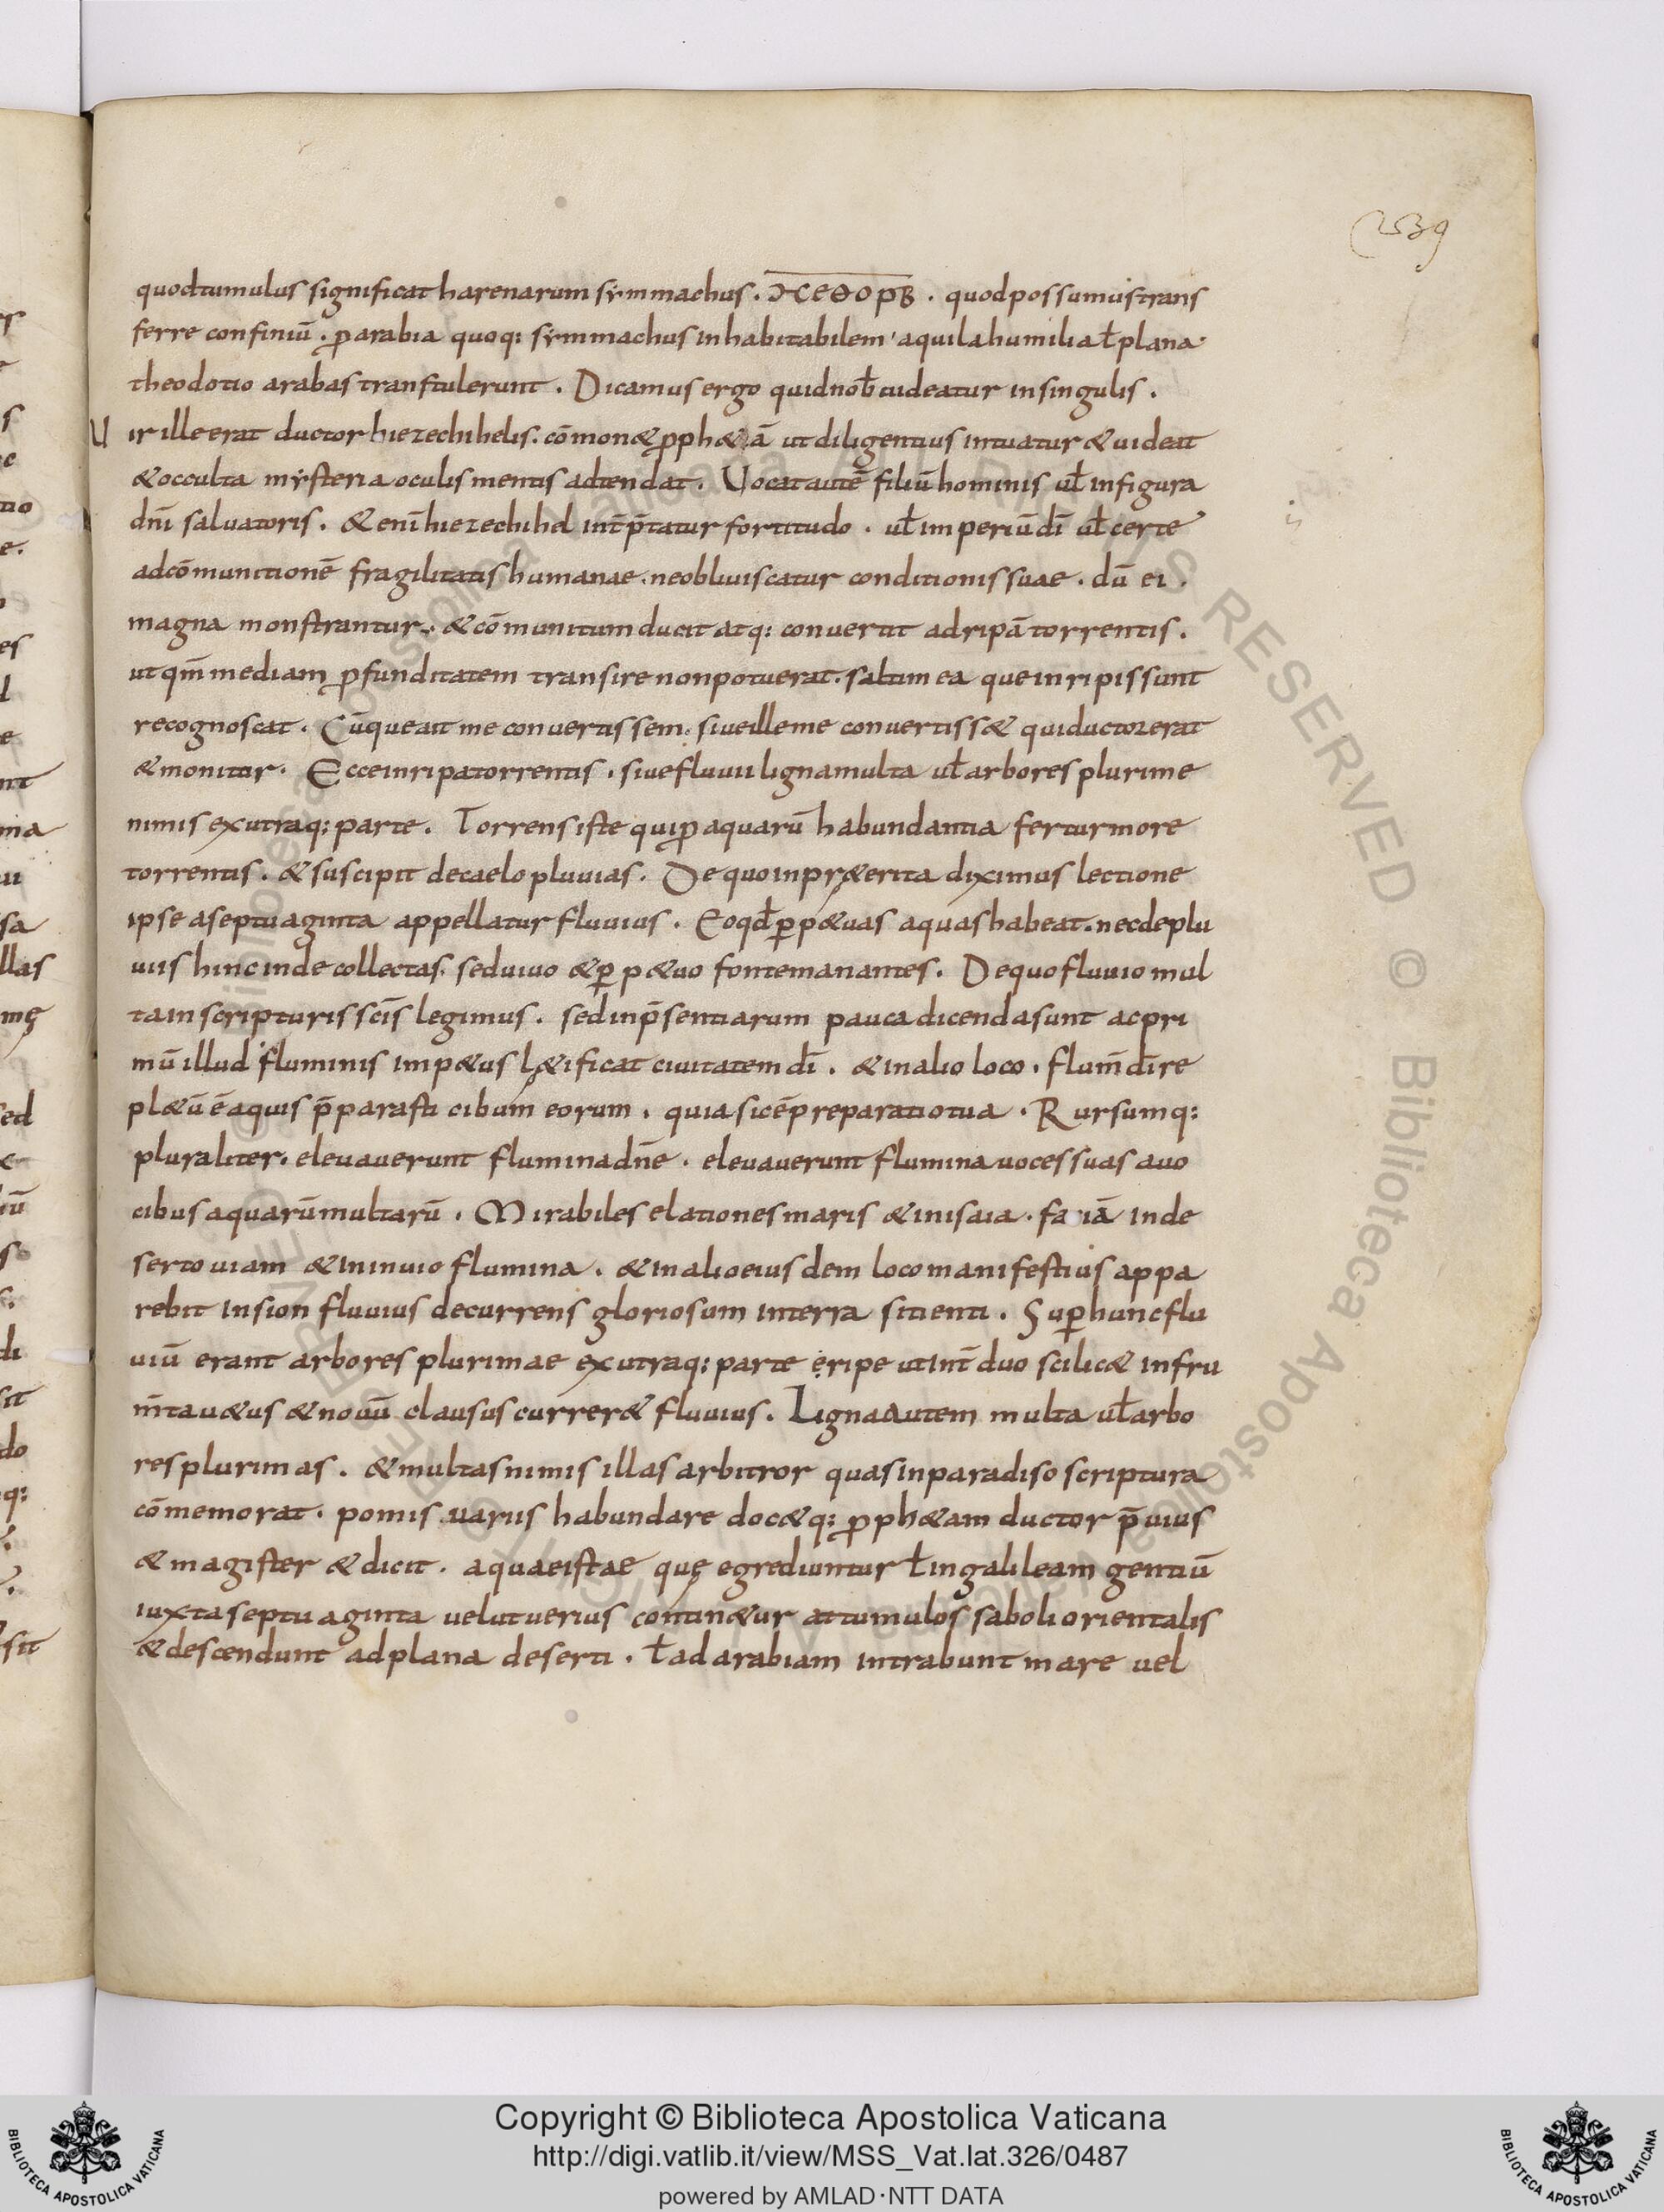 239
quod tumulus significat harenarum symmachus . ϽϹЄΘΟΡΒ . quod possumus trans
ferre confiniū . ꝓ arabia quoq: symmachus inhabitabilem ' aquila humilia ł plana .
theodotio arabas transtulerunt . Dicamus ergo quid nob̄ uideatur in singulis .
U ir ille erat ductor hiezechihelis . cōmon& ꝓph&ā ut diligentius intuatur & uideat
& occulta mysteria oculis mentis adtendat . Uocat autē filiū hominis uł in figura
dn̄i saluatoris . & enī hiezechihel int̄p̄tatur fortitudo . uł imperiū dī uł certe
ad cōmunitionē fragilitatis humanae . ne obliuiscatur conditionis suae . dū ei .
magna monstrantur . & cōmunitum ducit atq: conuertit ad ripā torrentis .
ut qm̄ mediam ꝓfunditatem transire non potuerat . saltim ea que in ripis sunt
recognoscat . Cūque ait me conuertissem . siue ille me conuertiss& qui ductor erat
& monitur . Ecce in ripa torrentis . siue fluuii ligna multa uł arbores plurime
nimis ex utraq: parte . Torrens iste qui ꝓ aquarū habundantia fertur more
torrentis . & suscipit de caelo pluuias . De quo in pr&erita diximus lectione
ipse a septuaginta appellatur fluuius . Eo qđ ꝑp&uas aquas habeat . nec de plu
uiis hinc inde collectas . sed uiuo & ꝑp&uo fonte manantes . De quo fluuio mul
ta in scripturis scīs legimus . sed in p̄sentiarum pauca dicenda sunt ac pri
mū illud fluminis imp&us l&ificat ciuitatem dī . & in alio loco . flum̄ dī re
pl&ū ē aquis p̄parasti cibum eorum . quia sic ē preparatio tua . Rursumq:
pluraliter . eleuauerunt flumina dn̄e . eleuauerunt flumina uoces suas a uo
cibus aquarū multarū . Mirabiles elationes maris & in isaia . faciā in de
serto uiam & in inuio flumina . & in alio eiusdem loco manifestius appa
rebit in sion fluuius decurrens gloriosum in terra sitienti . Super hunc flu
uiū erant arbores plurimae ex utraq: parte ęripe ut int̄ duo scilic& infru
m̄ta u&us & nouū clausus currer& fluuius . Ligna autem multa uł arbo
res plurimas . & multas nimis illas arbitror quas in paradiso scriptura
cōmemorat . pomis uariis habundare doc&q: ꝓph&am ductor p̄uius
& magister & dicit . aquae istae quę egrediuntur ł in galileam gentiū
iuxta septuaginta uel ut uerius contin&ur at tumulos saboli orientalis
& descendunt ad plana deserti . ł ad arabiam intrabunt mare uel
Copyright © Biblioteca Apostolica Vaticana
http://digi.vatlib.it/view/MSS_Vat.lat.326/0487
powered by AMLAD·NTT DATA